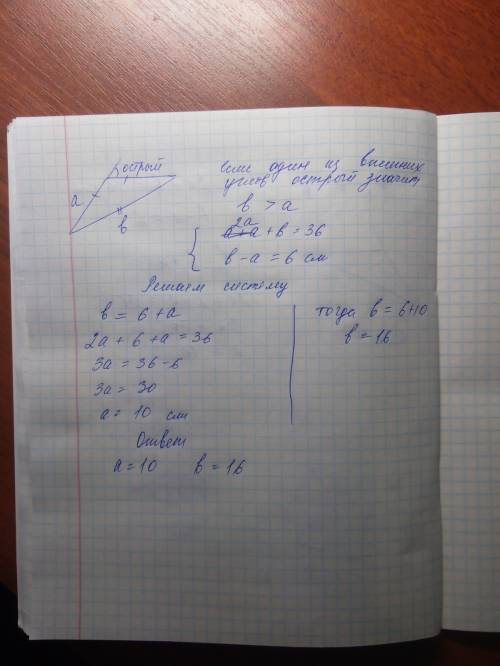 острый
a
в
если один из внешних
углов острый значит
в > a
2a
a+a + в = 36
в - a = 6 см
Решаем систему
в = 6 + a
2a + 6 + a = 36
3a = 36 - 6
3a = 30
a = 10 см
тогда в = 6+10
в = 16
Ответ
a = 10 в = 16